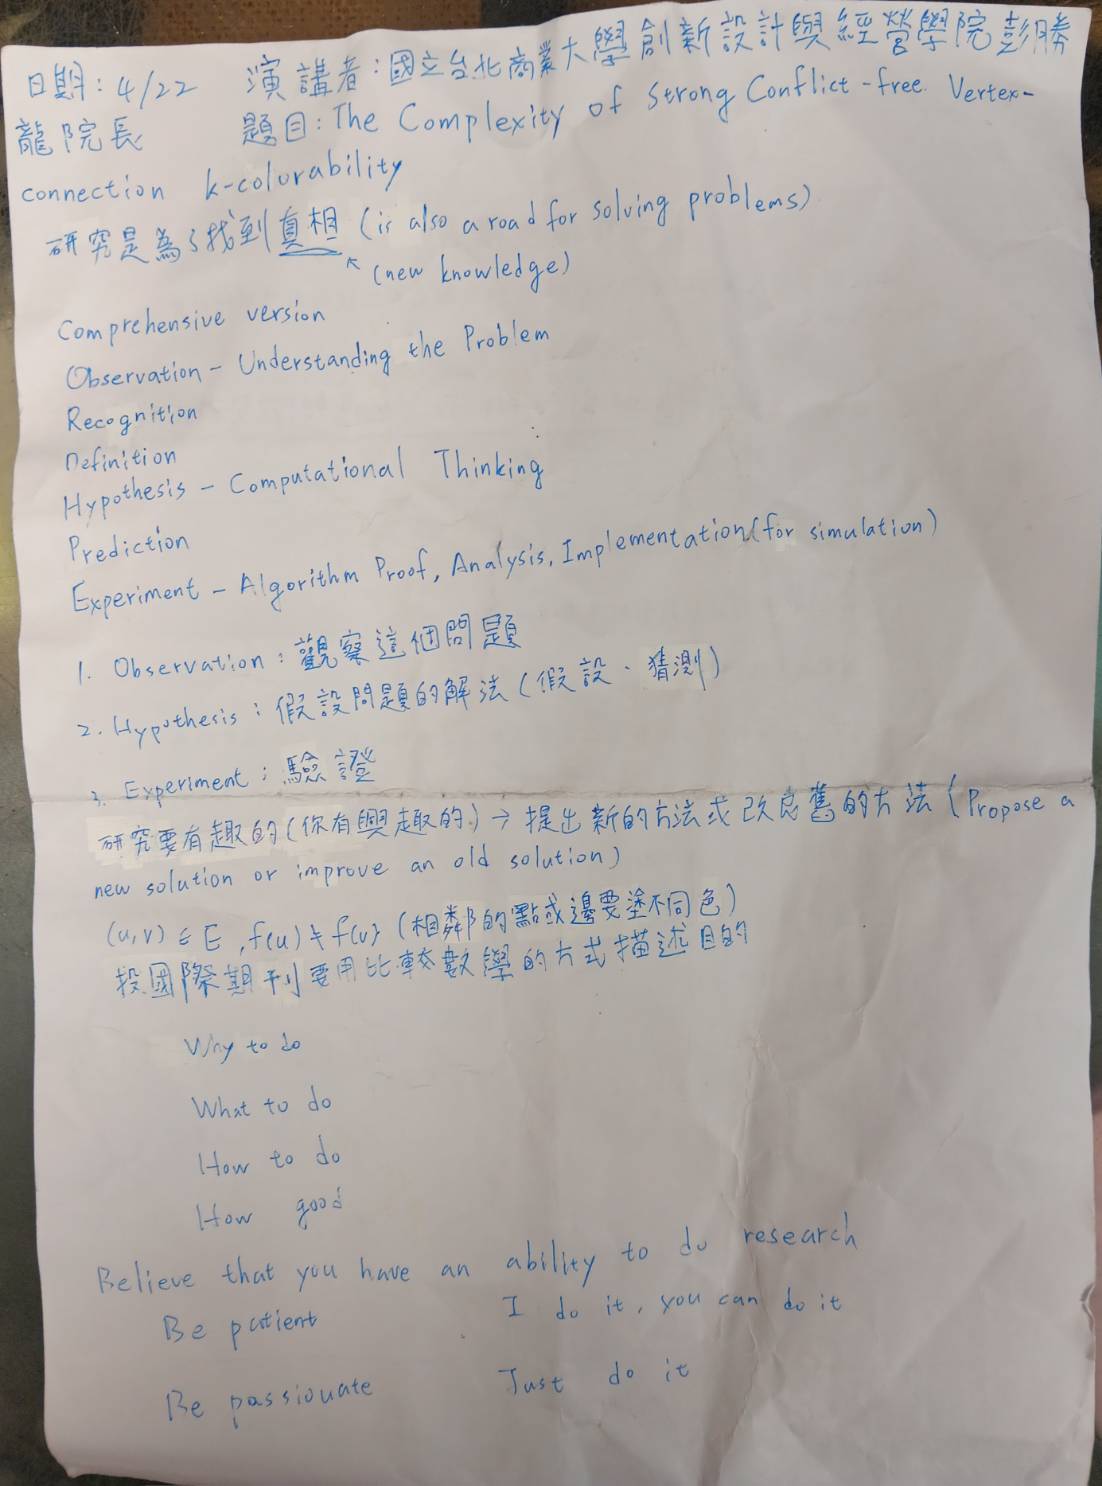 日期：4/22 演講者：國立台北商業大學創新設計與經營學院彭勝
龍院長 題目：The Complexity of Strong Conflict-free Vertex-
connection k-colorability
研究是為了找到真相 (is also a road for solving problems)
(new knowledge)
Comprehensive version
Observation - Understanding the Problem
Recognition
Definition
Hypothesis - Computational Thinking
Prediction
Experiment - Algorithm Proof, Analysis, Implementation(for simulation)
1. Observation：觀察這個問題
2. Hypothesis：假設問題的解法(假設、猜測)
3. Experiment：驗證
研究要有趣的(你有興趣的)→提出新的方法或改良舊的方法(Propose a
new solution or improve an old solution)
(u,v) ∈ E, f(u) ≠ f(v) (相鄰的點或邊要塗不同色)
投國際期刊要用比較數學的方式描述目的
Why to do
What to do
How to do
How good
Believe that you have an ability to do research
Be patient I do it, you can do it
Be passionate Just do it